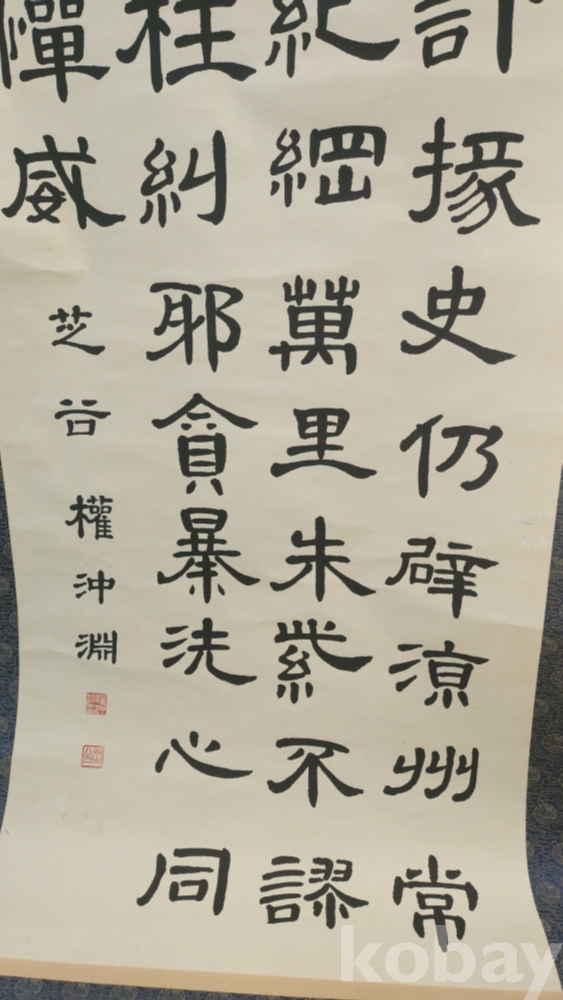 計掾史仍辟涼州常
紀綱萬里朱紫不謬
枉糾邪貪暴洗心同
憚威
芝谷 權沖淵
kobay